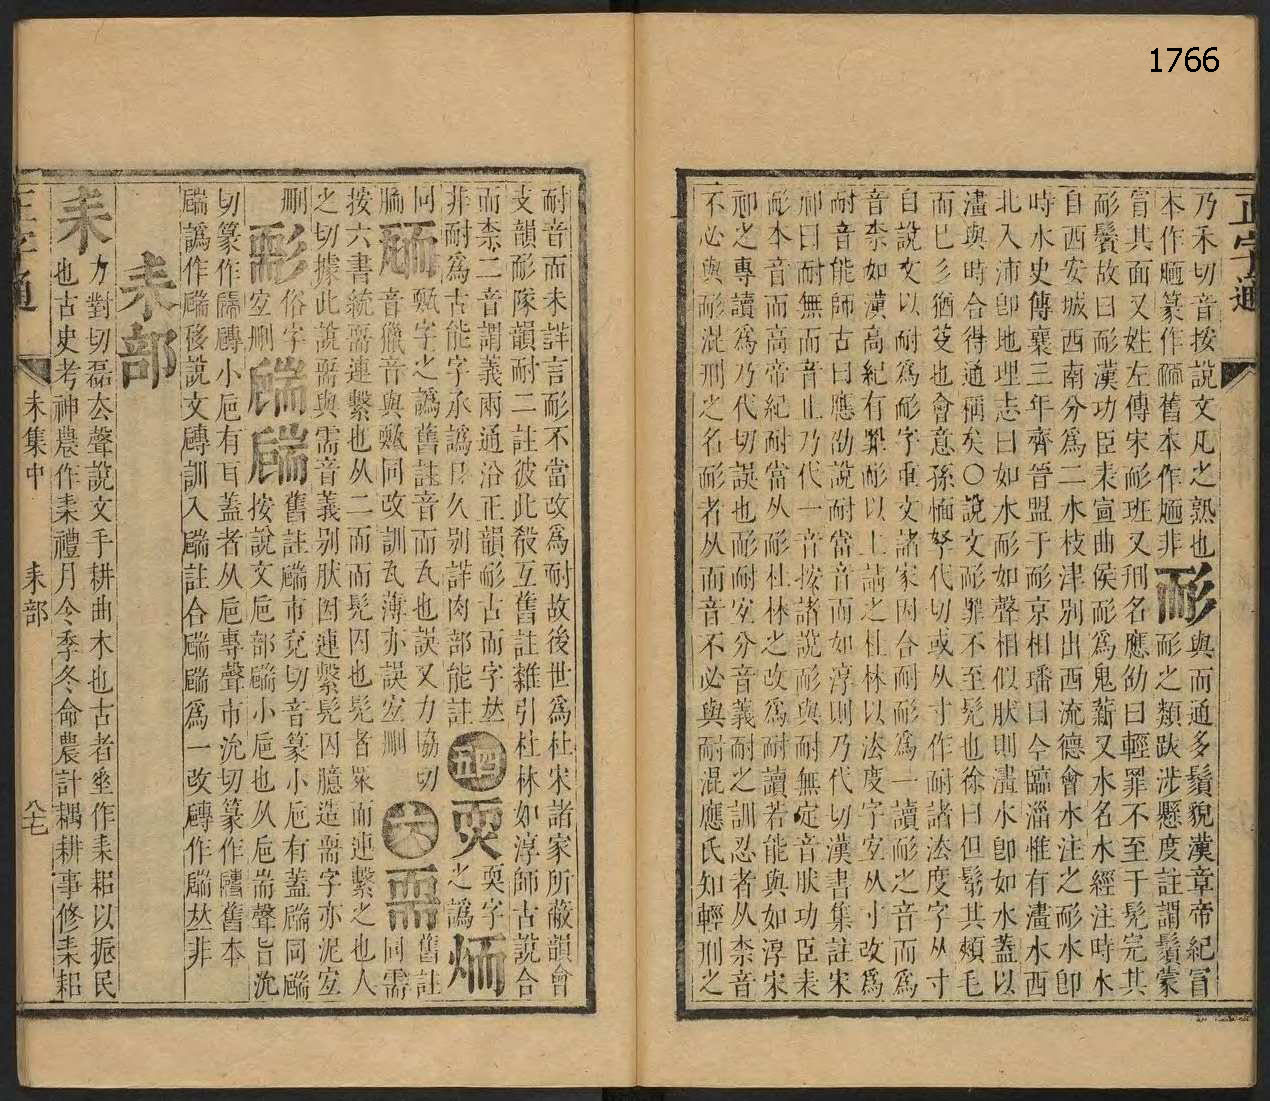 1766
正字通
乃禾切音按說文凡之熟也耏與而通多鬚貌漢章帝紀冒
耏之類跋涉懸度註謂鬚蒙
冒其面又姓左傳宋耏班又刑名應劭曰輕罪不至于髡完其
耏鬢故曰耏漢功臣表宣曲侯耏爲鬼薪又水名水經注時水
自西安城西南分爲二水枝津別出西流德會水注之耏水卽
時水史傳襄三年齊晉盟于耏京相璠曰今臨淄惟有澅水西
北入沛卽地理志曰如水耏如聲相似狀則澅水卽如水蓋以
澅與時合得通稱矣〇說文耏罪不至髡也徐曰但鬄其頰毛
而已彡猶芟也會意孫愐奴代切或从寸作耐諸法度字从寸
自說文以耐爲耏字重文諸家因合耐耏爲一讀耏之音而爲
音柰如漢高紀有罪耏以上請之杜林以法度字宜从寸改爲
耐音能師古曰應劭說耐當音而如淳則乃代切漢書集註宋
祁曰耐無而音止乃代一音按諸說耏與耐無定音狀功臣表
耏本音而高帝紀耐當从耏杜林之改爲耐讀若能與如淳宋
祁之專讀爲乃代切誤也耏耐宜分音義耐之訓忍者从柰音
不必與耏混刑之名耏者从而音不必與耐混應氏知輕刑之
耐音而未詳言耏不當改爲耐故後世爲杜宋諸家所蔽韻會
支韻耏隊韻耐二註彼此殺互舊註雜引杜林如淳師古說合
而柰二音謂義兩通沿正韻耏古而字𠀤
非耐爲古能字承譌日久別詳肉部能註四五耎耎字之譌
同字之譌舊註音而瓦也誤又力協切舊註
音臘音與同改訓瓦薄亦誤宜刪六需同需
按六書統需連繫也从二而而髡囚也髡者衆而連繫之也人
之切據此說需與需音義別狀因連繫髡囚臆造字亦泥宜
刪耏俗字宜刪舊註市兗切音篆小巵有蓋同
按說文巵部小巵也从巵耑聲旨沇
切篆作小巵有耳蓋者从巵專聲市沇切篆作舊本
譌作移說文訓入註合爲一改作𠀤非
耒部
耒力對切磊去聲說文手耕曲木也古者垂作耒耜以振民
也古史考神農作耒禮月令季冬命農計耦耕事修耒耜
正字通
未集中
耒部
八七